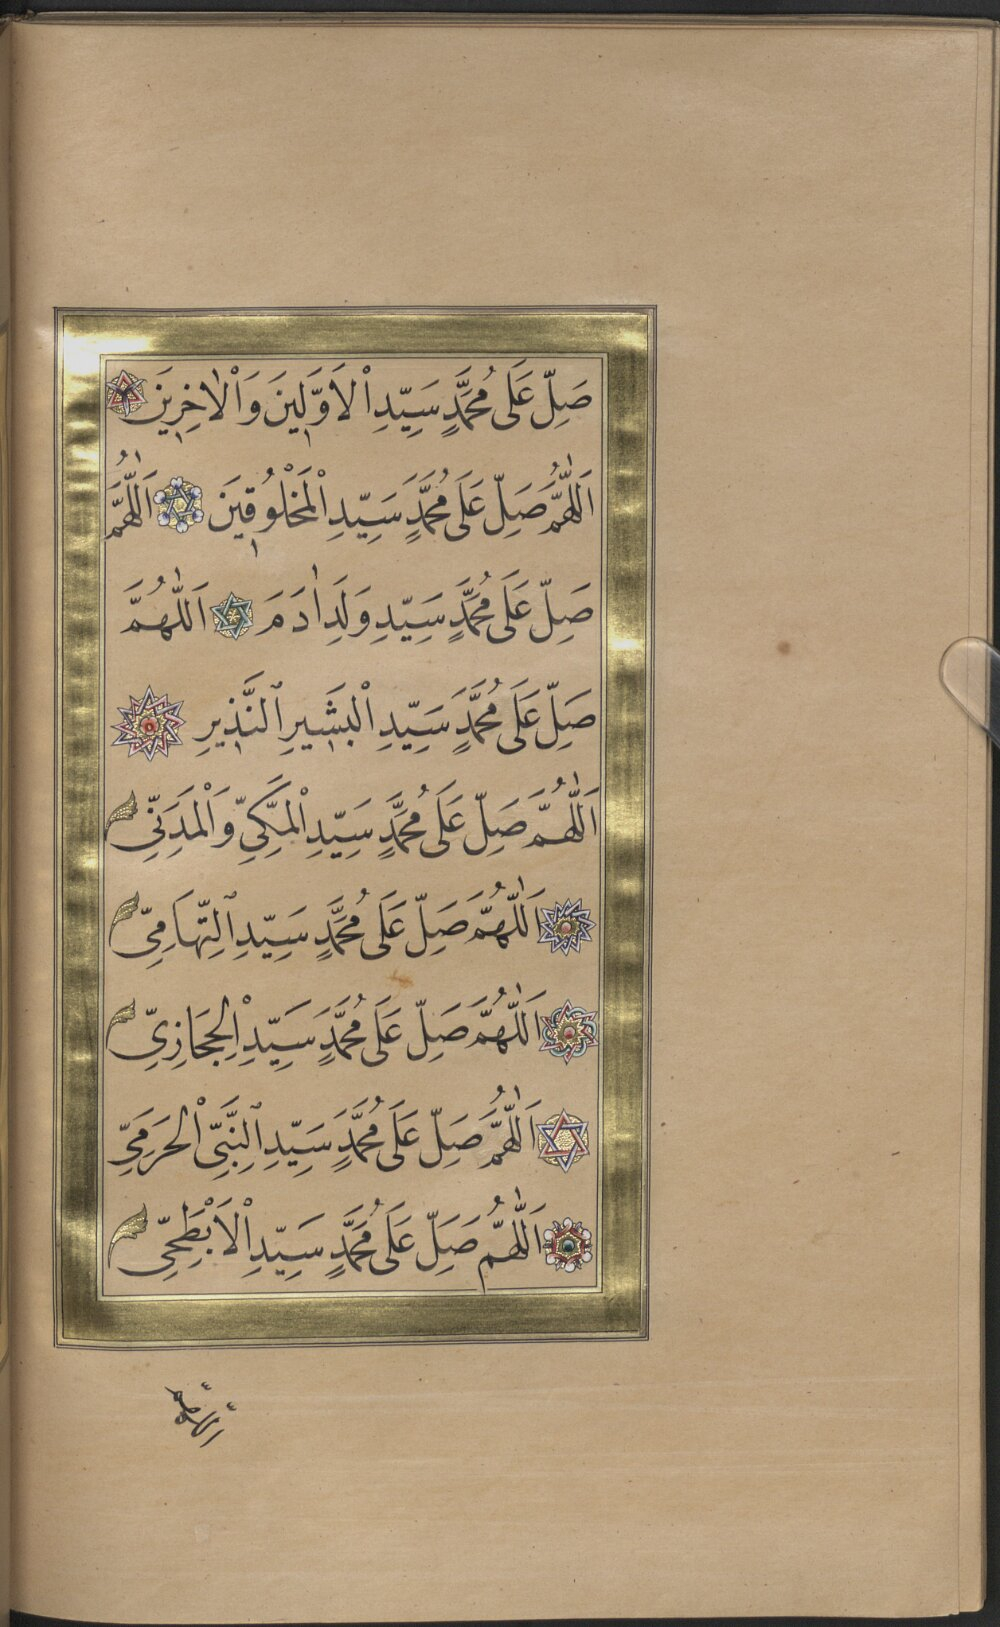 صَلِّ عَلَى مُحَمَّدٍ سَيِّدِ الْاَوَّلِينَ وَالْاٰخِرِينَ
اَللّٰهُمَّ صَلِّ عَلَى مُحَمَّدٍ سَيِّدِ الْمَخْلُوقِينَ اَللّٰهُمَّ
صَلِّ عَلَى مُحَمَّدٍ سَيِّدِ وَلَدِ اٰدَمَ اَللّٰهُمَّ
صَلِّ عَلَى مُحَمَّدٍ سَيِّدِ الْبَشِيرِ النَّذِيرِ
اَللّٰهُمَّ صَلِّ عَلَى مُحَمَّدٍ سَيِّدِ الْمَكِّيِّ وَالْمَدَنِيِّ
اَللّٰهُمَّ صَلِّ عَلَى مُحَمَّدٍ سَيِّدِ التِّهَامِيِّ
اَللّٰهُمَّ صَلِّ عَلَى مُحَمَّدٍ سَيِّدِ الْحِجَازِيِّ
اَللّٰهُمَّ صَلِّ عَلَى مُحَمَّدٍ سَيِّدِ النَّبِيِّ الْحَرَمِيِّ
اَللّٰهُمَّ صَلِّ عَلَى مُحَمَّدٍ سَيِّدِ الْاَبْطَحِيِّ